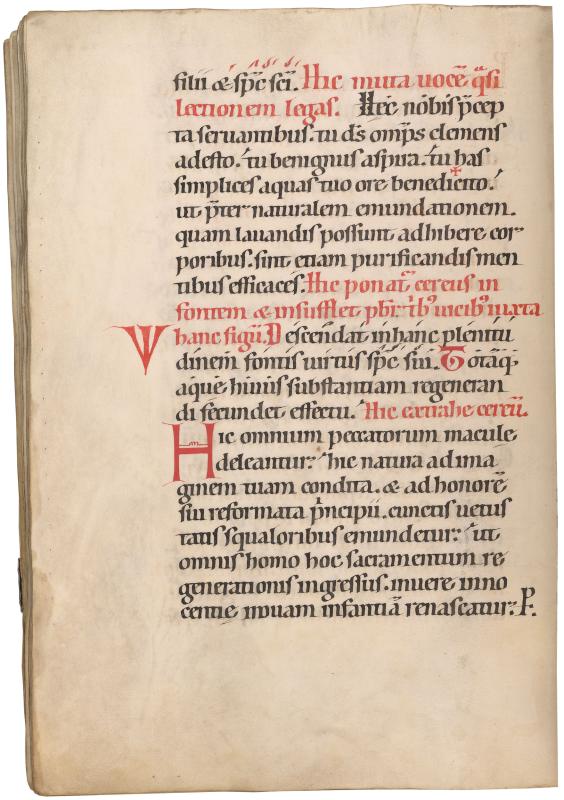 filii & spc̄ sc̄i. Hic muta uocē q̄si
lectionem legas. Hec nobis p̄cep
ta seruantibus. tu dš omp̄s clemens
adesto. tu benignus aspira. tu has
simplices aquas tuo ore benedicito.
ut p̄ter naturalem emundationem.
quam lauandis possunt adhibere cor
poribus. sint etiam purificandis men
tibus efficaces. Hic ponat̄ cereus in
fontem & insufflet pbr̄. tribꝰ uicibꝰ iuxta
hanc figū. Descendat in hanc plenitu
dinem fontis uirtus spc̄ sui. Totāq̄
aque huius substantiam regeneran
di fecundet effectu. Hic extrahe cereū.
Hic omnium peccatorum macule
deleantur. hic natura ad ima
ginem tuam condita. & ad honorē
sui reformata p̄ncipii. cunctis uetus
tatis squaloribus emundetur. ut
omnis homo hoc sacramentum re
generationis ingressus. inuere inno
centie nouam infantiā renascatur. P.